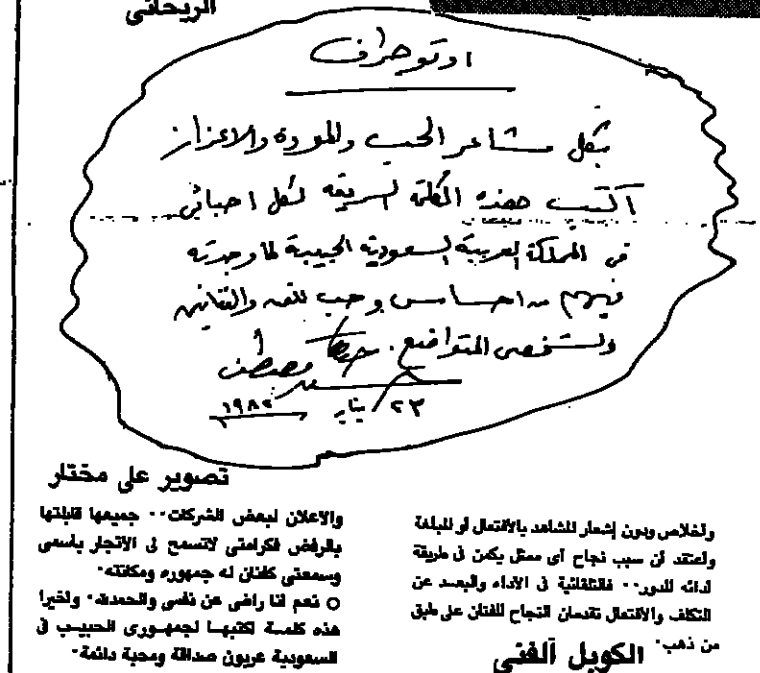 الريحانى
اوتوجراف
بكل مشاعر الحب والمودة والاعزاز
اكتب هذه الكلمة السريعه لكل احبائى
فى المملكة العربية السعودية الحبيبة لما وجدته
فيهم من احساس وحب للفن والفنانين
ولشخصى المتواضع.
مصطفى
٢٣ / يناير ١٩٨٢
تصوير على مختار
ولخلاص وبدون إشعار المشاهد بالافتعال أو المبالغة
ولعتقد أن سبب نجاح أى ممثل يكمن فى طريقة
أدائه للدور.. فالتلقائية فى الأداء والبعد عن
التكلف والافتعال تقدمان النجاح للفنان على طبق
من ذهب.
الكوبل الفنى
والاعلان لبعض الشركات.. جميعها قابلتها
بالرفض فكرامتى لاتسمح لى الاتجار باسمى
وسمعتى كفنان له جمهوره ومكانته.
○ نعم انا راضى عن نفسى والحمدلله. ولخيرا
هذه كلمـة اكتبهـا لجمهـورى الحبيـب فى
السعودية عربون صداقة ومحبة دائمة.